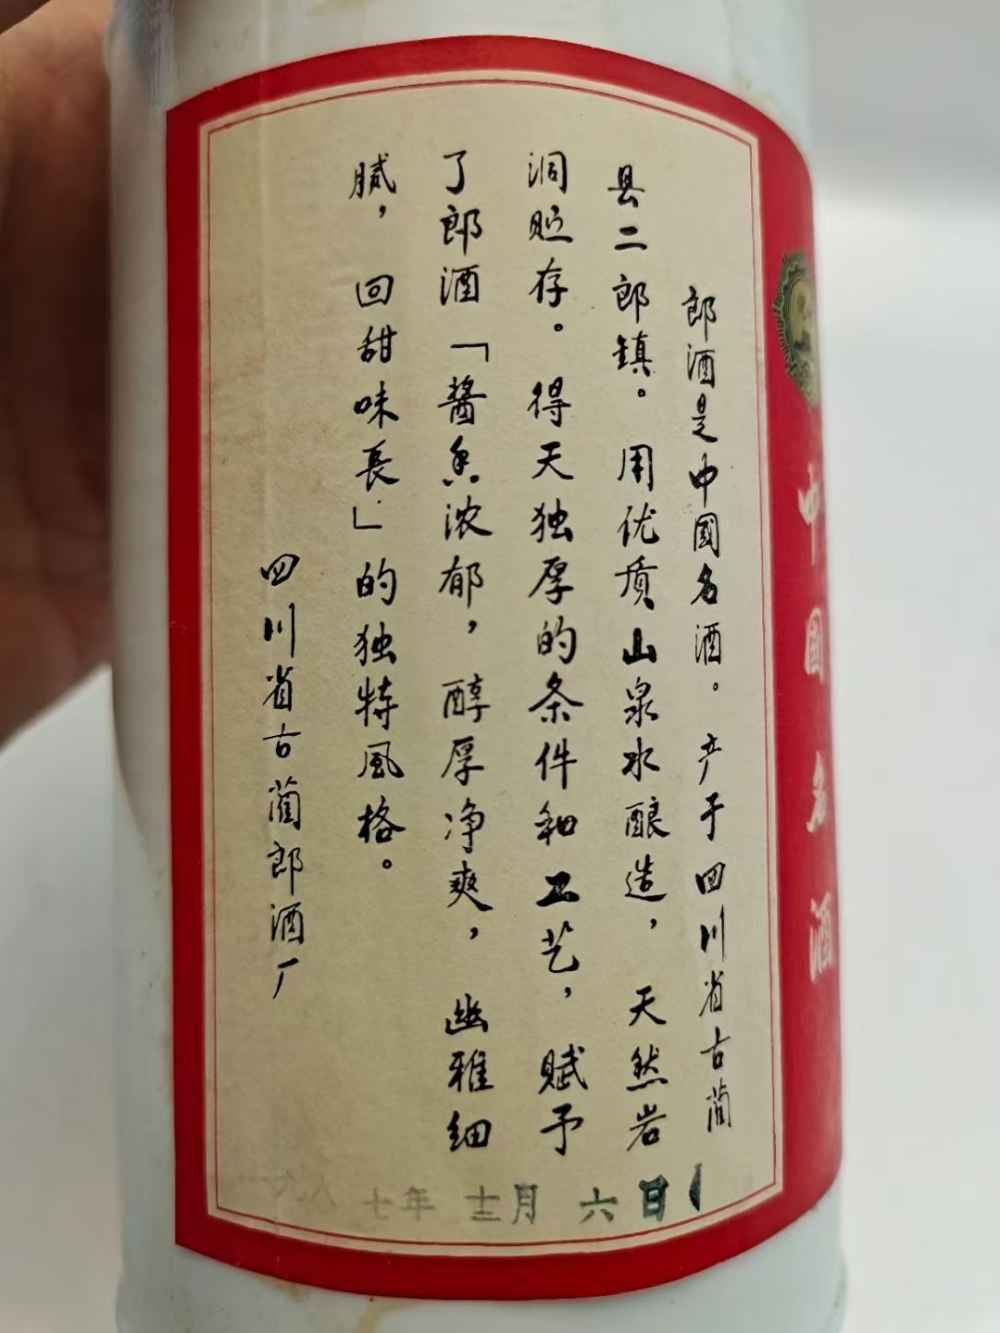 郎酒是中國名酒。产于四川省古蔺
县二郎镇。用优质山泉水酿造，天然岩
洞贮存。得天独厚的条件和工艺，赋予
了郎酒「醬香浓郁，醇厚净爽，幽雅细
腻，回甜味長」的独特風格。
四川省古蔺郎酒厂
七年 十二月 六日
中國名酒